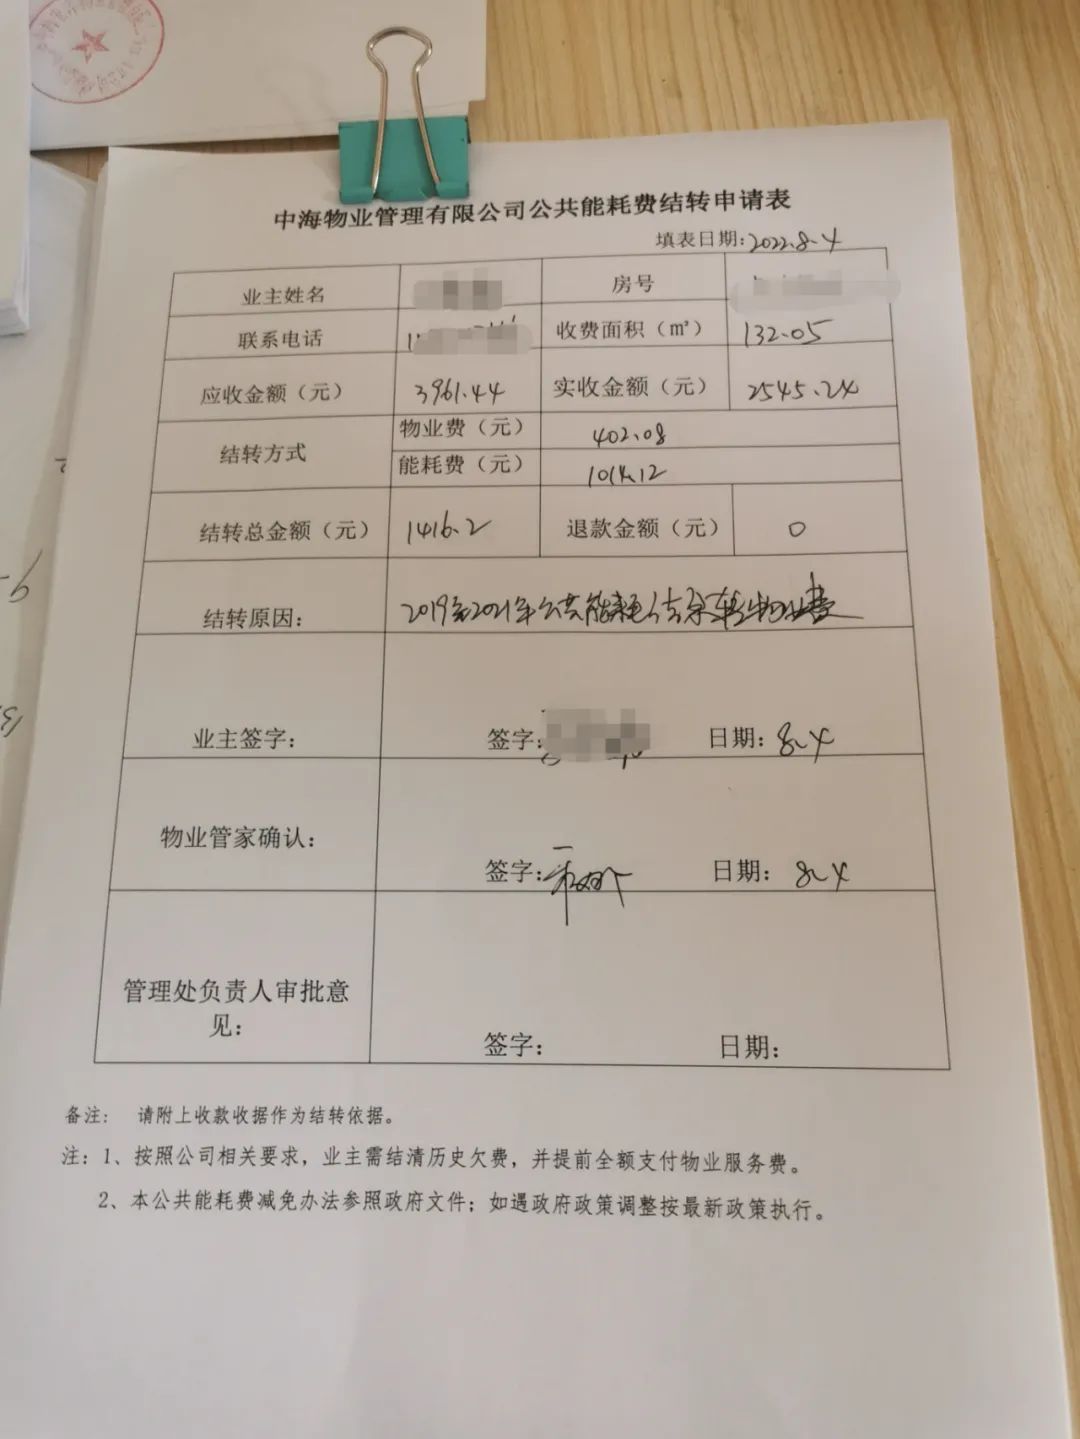 中海物业管理有限公司公共能耗费结转申请表
填表日期:2022.8.4
业主姓名 房号
联系电话 收费面积（㎡） 132.05
应收金额（元） 3961.44 实收金额（元） 2545.24
结转方式 物业费（元） 402.08
能耗费（元） 1014.12
结转总金额（元） 1416.2 退款金额（元） 0
结转原因: 2019年2021年公共能耗结余转物业费
业主签字: 签字: 日期: 8.4
物业管家确认: 签字: 日期: 8.4
管理处负责人审批意
见: 签字: 日期:
备注: 请附上收款收据作为结转依据。
注: 1、按照公司相关要求，业主需结清历史欠费，并提前全额支付物业服务费。
2、本公共能耗费减免办法参照政府文件；如遇政府政策调整按最新政策执行。